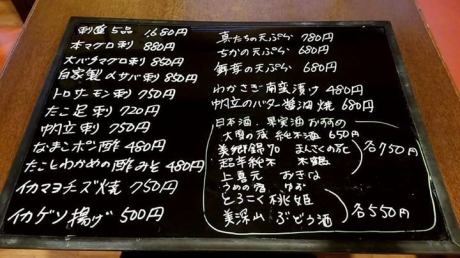 刺盛5品 1680円
本マグロ刺 880円
大バチマグロ刺 850円
自家製〆サバ刺 850円
トロサーモン刺 750円
たこ足刺 720円
帆立刺 750円
なまこポン酢 480円
たことわかめの酢みそ 480円
イカマヨチーズ焼 750円
イカゲソ揚げ 500円
真たちの天ぷら 780円
ちかの天ぷら 680円
天ぷら 680円
わかさぎ南蛮漬け 480円
帆立のバター醤油焼 680円
日本酒、果実酒おすすめ
純米酒 650円
美郷錦70 まんさくの花
超辛純米
各750円
上喜元 おきな
うめの宿 ゆず
とろこく桃姫
美深山 ぶどう酒
各550円